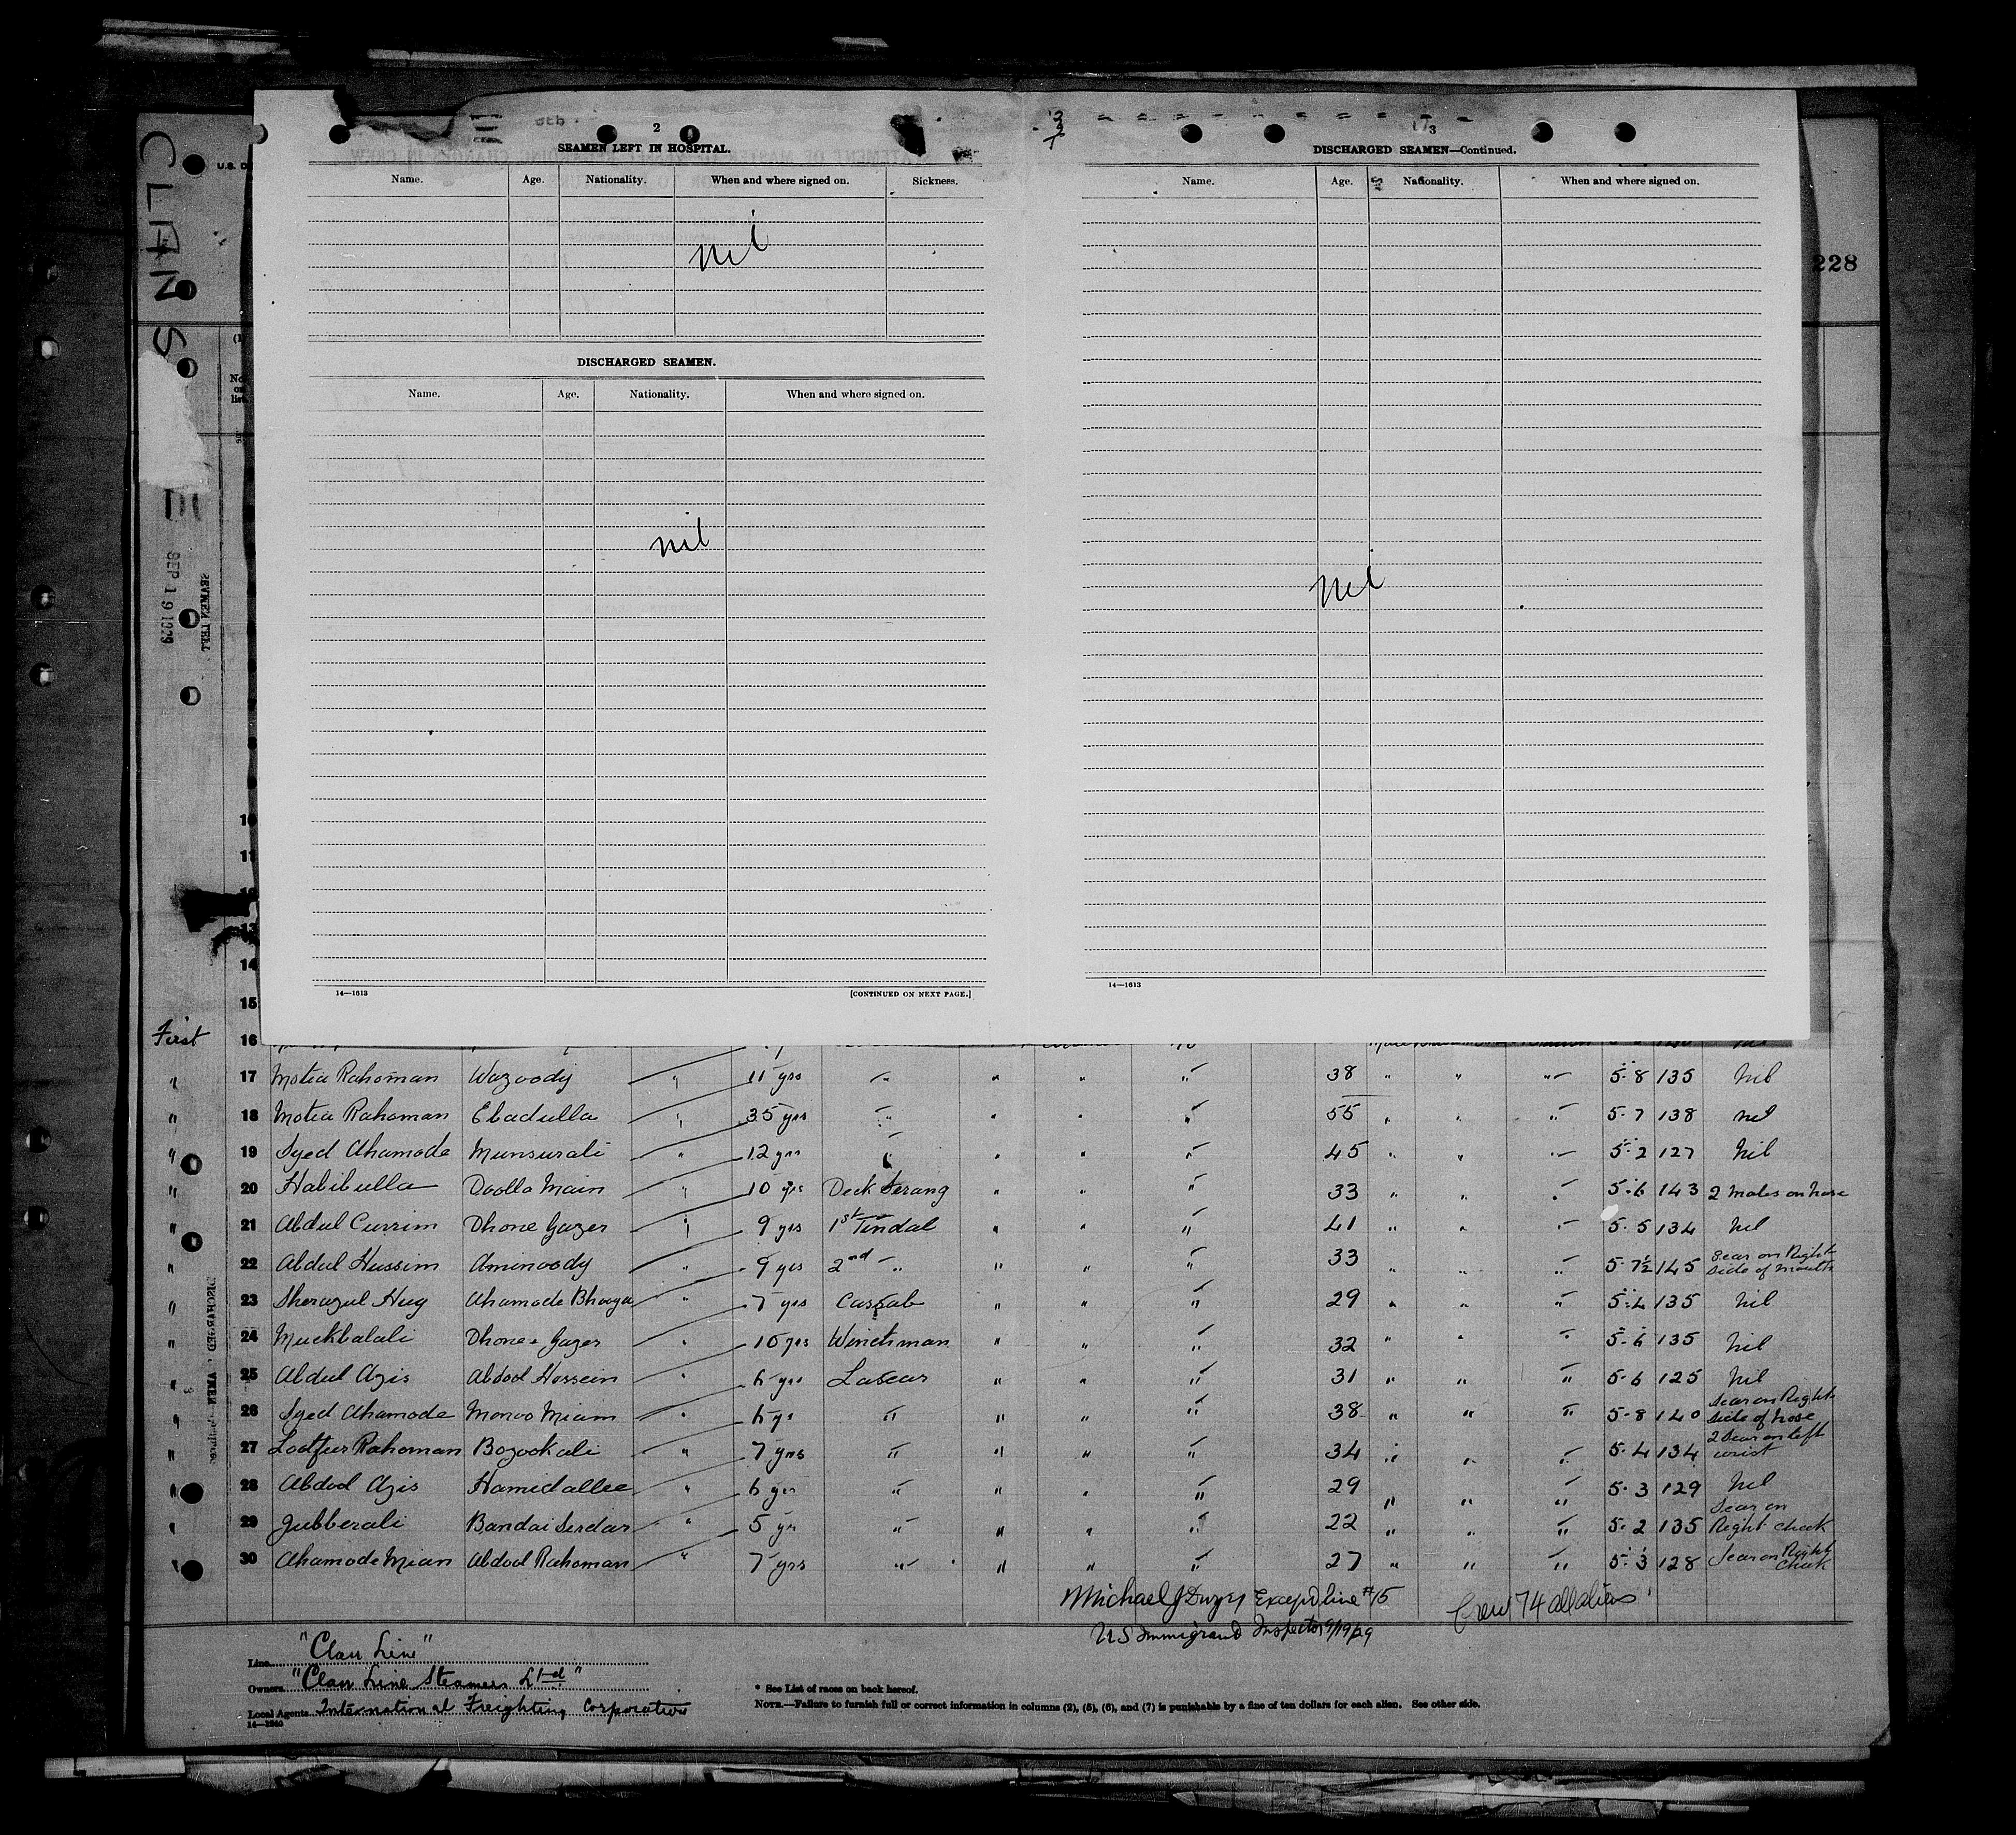 CLAN S
U.S. D
228
2
SEAMEN LEFT IN HOSPITAL.
Name. Age. Nationality. When and where signed on. Sickness.
nil
DISCHARGED SEAMEN.
Name. Age. Nationality. When and where signed on.
nil
14—1613 [CONTINUED ON NEXT PAGE.]
3
DISCHARGED SEAMEN—Continued.
Name. Age. Nationality. When and where signed on.
Nil
14—1613
No. on list
SEP 19 1929
10
11
12
13
14
15
First 16
" 17 Motia Rahoman Wazoody " 11 yrs " " " " 38 " " " 5-8 135 Nil
" 18 Motia Rahoman Ebadulla " 35 yrs " " " " 55 " " " 5-7 138 nil
" 19 Syed Ahamode Munsurali " 12 yrs " " " " 45 " " " 5-2 127 Nil
" 20 Habibulla Doolla Main " 10 yrs Deck Serang " " " 33 " " " 5-6 143 2 moles on nose
" 21 Abdul Currim Dhone Gazer " 9 yrs 1st Tindal " " " 41 " " " 5-5 134 Nil
" 22 Abdul Hussim Aminoody " 9 yrs 2nd " " " " 33 " " " 5-7½ 145 Scar on Right side of mouth
" 23 Sherazul Hug Ahamode Bhooya " 7 yrs Cassab " " " 29 " " " 5-4 135 Nil
" 24 Muckbalali Dhone Gazer " 10 yrs Winchman " " " 32 " " " 5-6 135 Nil
" 25 Abdul Azis Abdool Hossein " 6 yrs Lascar " " " 31 " " " 5-6 125 Nil
" 26 Syed Ahamode Monoo Miam " 6 ys " " " " 38 " " " 5-8 140 Scar on Right side of nose
" 27 Lootfur Rahoman Bozookali " 7 yrs " " " " 34 " " " 5-4 134 2 Scar on left wrist
" 28 Abdool Azis Hamidallee " 6 yrs " " " " 29 " " " 5-3 129 Nil
" 29 Jubberali Bandai Serdar " 5 yrs " " " " 22 " " " 5-2 135 Scar on Right cheek
" 30 Ahamode Mian Abdool Rahoman " 7 yrs " " " " 27 " " " 5-3 128 Scar on Right cheek
Michael J Dwyer Except line #15
Crew 74 all aliens
US Immigrant Inspector 9/19/29
Line "Clan Line"
Owners "Clan Line Steamers Ltd"
Local Agents International Freighting Corporation
14—1540
* See List of races on back hereof.
NOTE.—Failure to furnish full or correct information in columns (2), (5), (6), and (7) is punishable by a fine of ten dollars for each alien. See other side.